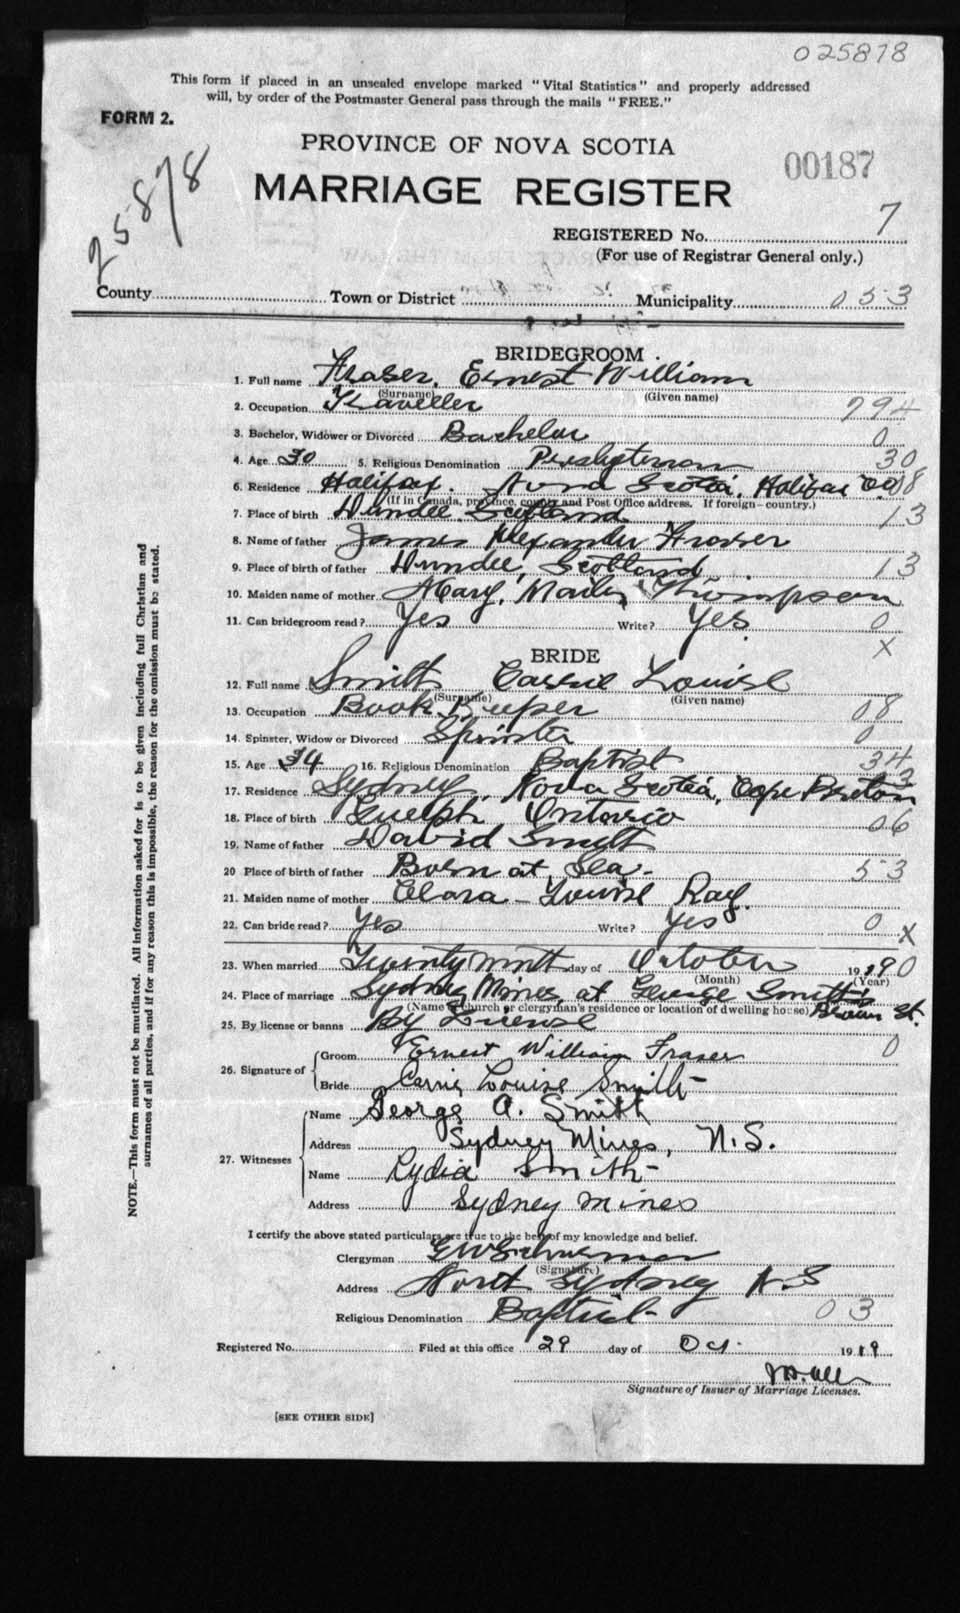 025878
This form if placed in an unsealed envelope marked "Vital Statistics" and properly addressed
will, by order of the Postmaster General pass through the mails "FREE."
FORM 2.
PROVINCE OF NOVA SCOTIA
00187
25878
MARRIAGE REGISTER
REGISTERED No. 7
(For use of Registrar General only.)
County Town or District Municipality 053
BRIDEGROOM.
1. Full name Fraser, Ernest William
(Surname) (Given name)
2. Occupation Traveller 794
3. Bachelor, Widower or Divorced Bachelor 0
4. Age 30 5. Religious Denomination Presbyterian 30
6. Residence Halifax. Nova Scotia, Halifax Co 08
(If in Canada, province, county and Post Office address. If foreign—country.)
7. Place of birth Dundee, Scotland 13
8. Name of father James Alexander Fraser
9. Place of birth of father Dundee, Scotland 13
10. Maiden name of mother Mary, Thompson
11. Can bridegroom read? Yes Write? Yes. 0
X
BRIDE
12. Full name Smith Carrie Louise
(Surname) (Given name)
13. Occupation Book Keeper 08
14. Spinster, Widow or Divorced Spinster 0
15. Age 34 16. Religious Denomination Baptist 34
17. Residence Sydney, Nova Scotia, Cape Breton 03
18. Place of birth Guelph Ontario 06
19. Name of father David Smith
20 Place of birth of father Born at Sea. 53
21. Maiden name of mother Clara Louise Ray.
22. Can bride read? Yes Write? Yes 0 X
23. When married Twenty ninth day of October 1919 0
(Month) (Year)
24. Place of marriage Sydney Mines, at George Smith's
(Name of church or clergyman's residence or location of dwelling house) St.
25. By license or banns By License 0
26. Signature of Groom Ernest William Fraser
Bride Carrie Louise Smith
27. Witnesses Name George A. Smith
Address Sydney Mines, N.S.
Name Lydia Smith
Address Sydney Mines
I certify the above stated particulars are true to the best of my knowledge and belief.
Clergyman G W Schurman
(Signature)
Address North Sydney N S
Religious Denomination Baptist 03
Registered No. Filed at this office 29 day of Oct. 1919
Signature of Issuer of Marriage Licenses.
[SEE OTHER SIDE]
NOTE.—This form must not be mutilated. All information asked for is to be given including full Christian and
surnames of all parties, and if for any reason this is impossible, the reason for the omission must be stated.